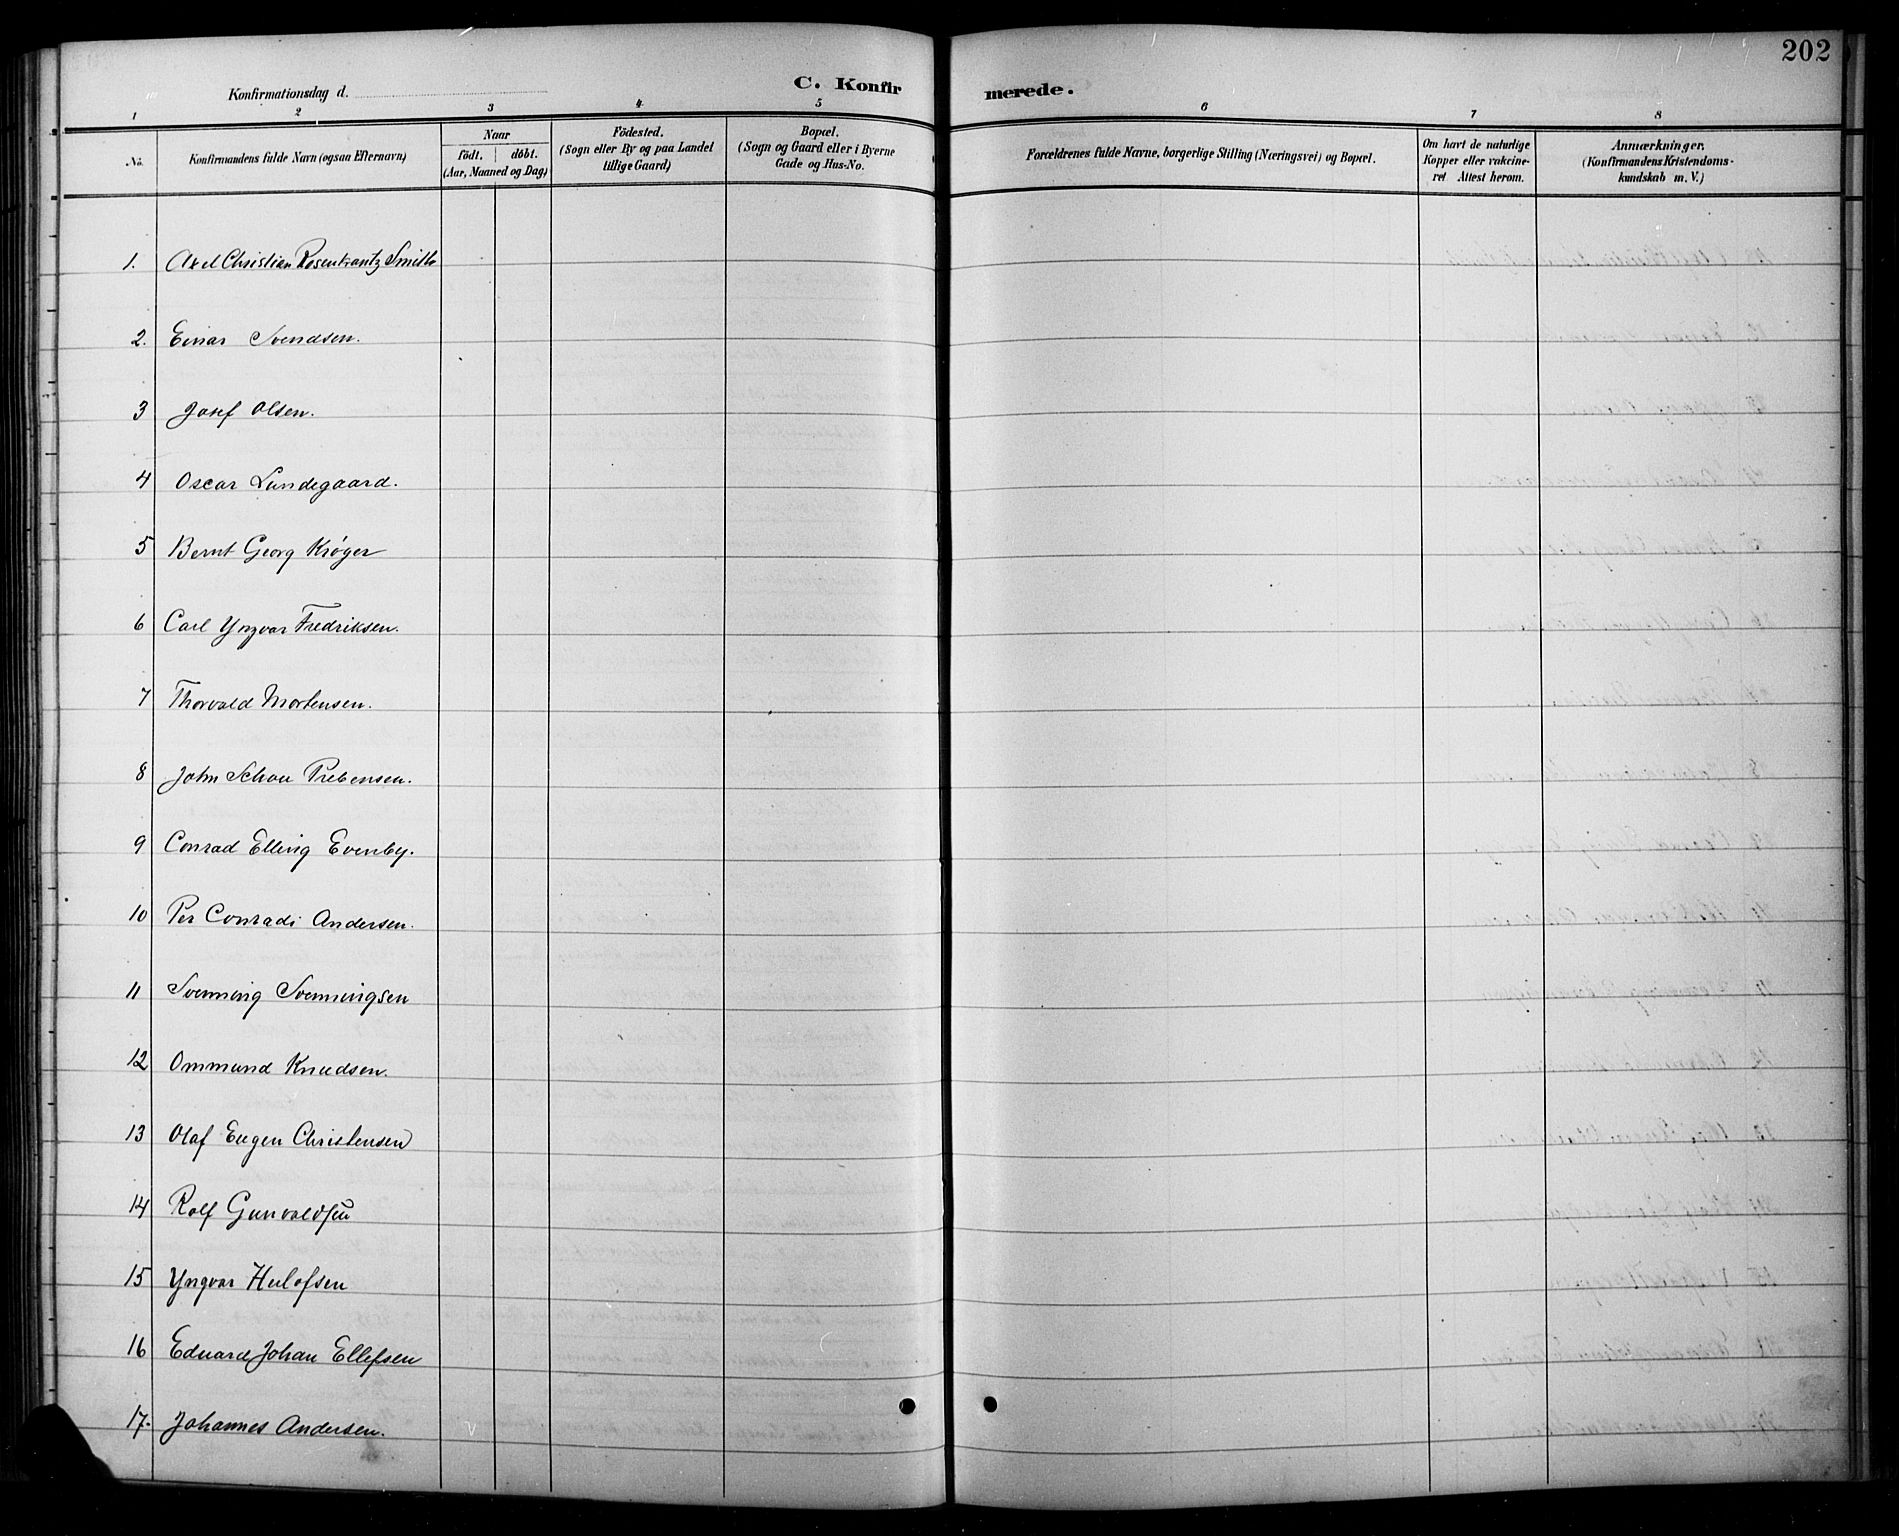 202
Konfirmationsdag d.
C. Konfirmerede.
1 2 3 4 5 6 7 8
No.
Konfirmandens fulde Navn (ogsaa Efternavn)
Naar
födt. döbt.
(Aar, Maaned og Dag)
Födested.
(Sogn eller By og paa Landet
tillige Gaard)
Bopæl.
(Sogn og Gaard eller i Byerne
Gade og Hus-No.
Forældrenes fulde Navne, borgerlige Stilling (Næringsvei) og Bopæl.
Om havt de naturlige
Kopper eller vakcine-
ret Attest herom.
Anmærkninger.
(Konfirmandens Kristendoms-
kundskab m. V.)
1. Axel Christian Rosenkrantz Smith
2. Einar Svendsen.
3 Josef Olsen.
4 Oscar Lundegaard.
5 Bernt Georg Krøger
6 Carl Yngvar Fredriksen.
7 Thorvald Mortensen.
8 John Schou Prebensen.
9 Conrad Elling Evenby.
10 Per Conradi Andersen.
11 Svenning Svenningsen
12 Ommund Knudsen.
13 Olaf Eugen Christensen
14 Rolf Gunvaldsen
15 Yngvar Hulofsen
16 Eduard Johan Ellefsen
17. Johannes Andersen.